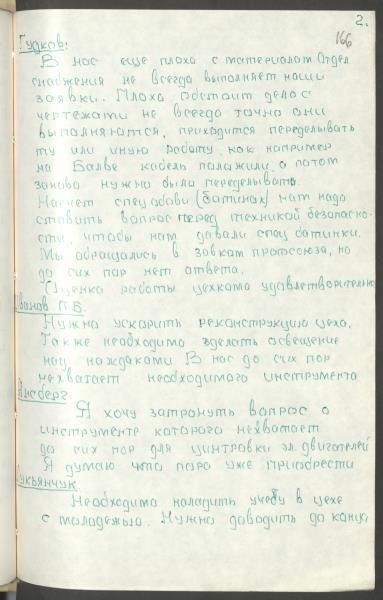 2.
166
Гудков:
В нас еще плохо с материалом Отдел
снабжения не всегда выполняет наши
заявки. Плохо обстоит дело с
чертежами не всегда точно они
выполняются, приходится переделывать
ту или иную работу, как например
на Балве кабель положили а потом
заново нужно было переделывать.
Насчет спец обови (батинах) нам надо
ставить вопрос перед техникой безопасно-
сти, чтобы нам давали спец батинки.
Мы обращались в зовком протсоюза, но
до сих пор нет ответа.
Оценка работы цехкома удовлетворительно
Иванов П.В.
Нужно ускорить реконструкцию цеха.
Также необходимо зделать освещение
над нождаками В нас до сих пор
нехватает необходимого инструмента
Айсберг
Я хочу затронуть вопрос о
инструменте которого нехватает
до сих пор для цинтровки эл. двигателей
Я думаю что пора уже приобрести
Лукьянчук
Необходимо наладить учебу в цехе
с молодежью. Нужно доводить до конца